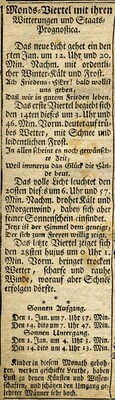 Monds-Viertel mit ihren
Witterungen und Staats-
Prognostica.
Das neue Licht gehet ein den
1ten Jan. um 12. Uhr und 20.
Min. Nachm. mit ordentli-
cher Winter-Kält und Frost.
uns geben,
Daß wir in gutem Frieden leben.
Das erste Viertel begiebt sich
den 14ten dieses um 2. Uhr und
46. Min. Vorm. deutet auf trü-
bes Wetter, mit Schnee und
leidentlichen Frost.
In allen scheint es noch gewünsch-
te Zeit,
Weil immerzu das Glück die Hän-
de beut.
Das volle Licht leuchtet den
20sten dieses um 6. Uhr und 7.
Min. Nachm. drohet Kält und
Morgenwind, dabey sich aber
feiner Sonnenschein einfindet.
Jetzt ist der Himmel dem geneigt,
Der sich zum Freyen willig zeigt.
Das letzte Viertel zeiget sich
den 28sten hujus um 0 Uhr 1.
Min. Vorm. bringet trocken
Wetter, scharfe und rauhe
Winde, worauf aber Schnee
erfolgen dörfte.
Sonnen Aufgang.
Den 1. Jan. um 7. Uhr 57. Min.
Den 14. dito um 7. Uhr 47. Min.
Sonnen Untergang.
Den 1. Jan. um 4. Uhr 3. Min.
Den 14. dito um 4. Uhr 13. Min.
Kinder in diesem Monath geboh-
ren, werden geschickte Leuthe, haben
Lust zu denen Künsten und Wissen-
schafften, und lieben den Umgang ge-
lehrter Männer sehr hoch.